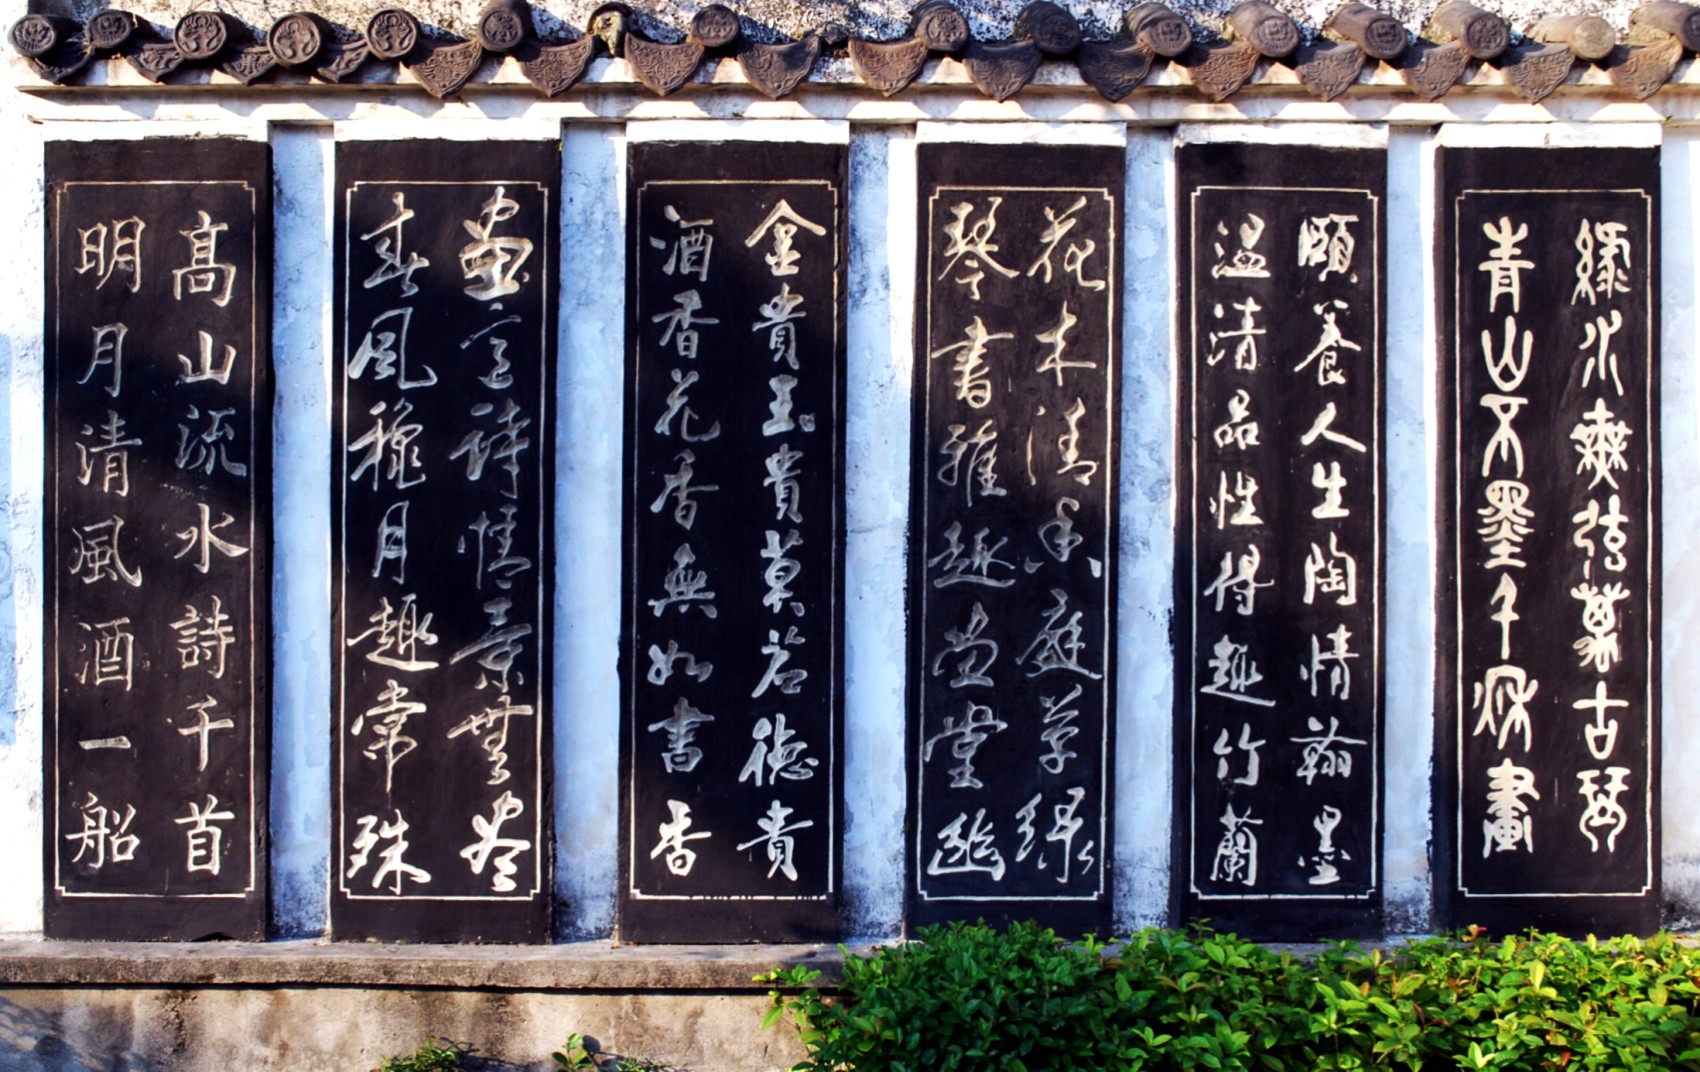 綠水無弦萬古琴
青山不墨千秋畫
頤養人生陶情翰墨
溫清品性得趣竹蘭
花木清香庭草綠
琴書雅趣畫堂幽
金貴玉貴莫若德貴
酒香花香無如書香
畫意詩情景無尽
春風穐月趣常殊
高山流水詩千首
明月清風酒一船